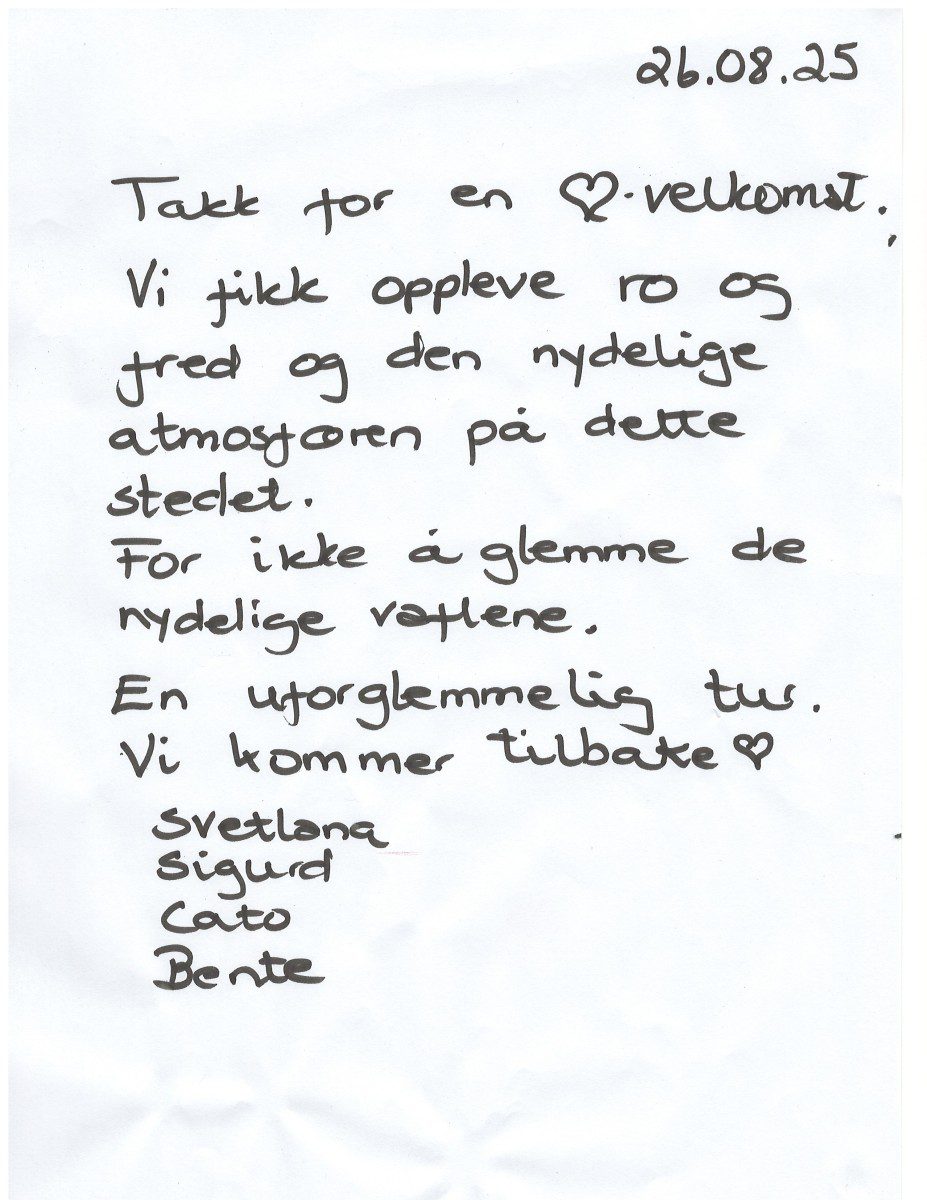 26.08.25
Takk for en ♡-velkomst.
Vi fikk oppleve ro og
fred og den nydelige
atmosfæren på dette
stedet.
For ikke å glemme de
nydelige vaflene.
En uforglemmelig tur.
Vi kommer tilbake ♡
Svetlana
Sigurd
Cato
Bente